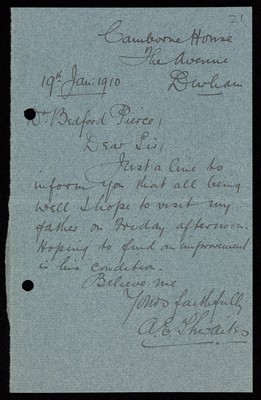 71
Camborne House
The Avenue
19th Jan: 1910 Durham
Dr Bedford Pierce,
Dear Sir,
Just a line to
inform you that all being
well I hope to visit my
father on Friday afternoon.
Hoping to find an improvement
in his condition.
Believe me
Yours faithfully
A.E. Thwaites